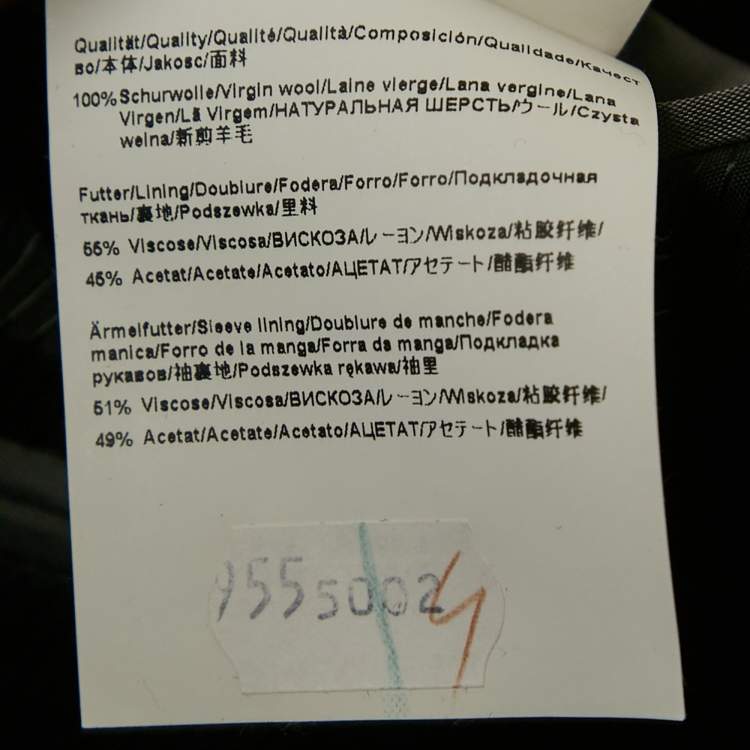 Qualität/Quality/Qualité/Qualità/Composición/Qualidade/Качест
во/本体/Jakosc/面料
100% Schurwolle/Virgin wool/Laine vierge/Lana vergine/Lana
Virgen/Lã Virgem/НАТУРАЛЬНАЯ ШЕРСТЬ/ウール/Czysta
welna/新剪羊毛
Futter/Lining/Doublure/Fodera/Forro/Forro/Подкладочная
ткань/裏地/Podszewka/里料
55% Viscose/Viscosa/ВИСКОЗА/レーヨン/Wiskoza/粘胶纤维/
45% Acetat/Acetate/Acetato/АЦЕТАТ/アセテート/醋酯纤维
Ärmelfutter/Sleeve lining/Doublure de manche/Fodera
manica/Forro de la manga/Forra da manga/Подкладка
рукавов/袖裏地/Podszewka rękawa/袖里
51% Viscose/Viscosa/ВИСКОЗА/レーヨン/Wiskoza/粘胶纤维/
49% Acetat/Acetate/Acetato/АЦЕТАТ/アセテート/醋酯纤维
5550024